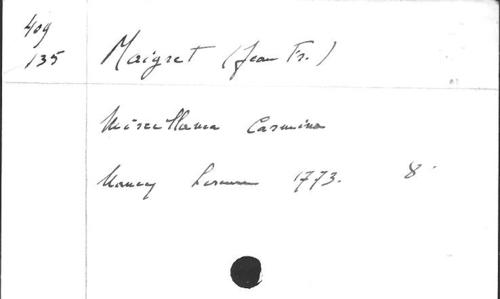 409
135
Maigret (Jean Fr.)
Miscellanea Carmina
Nancy 1773. 8°